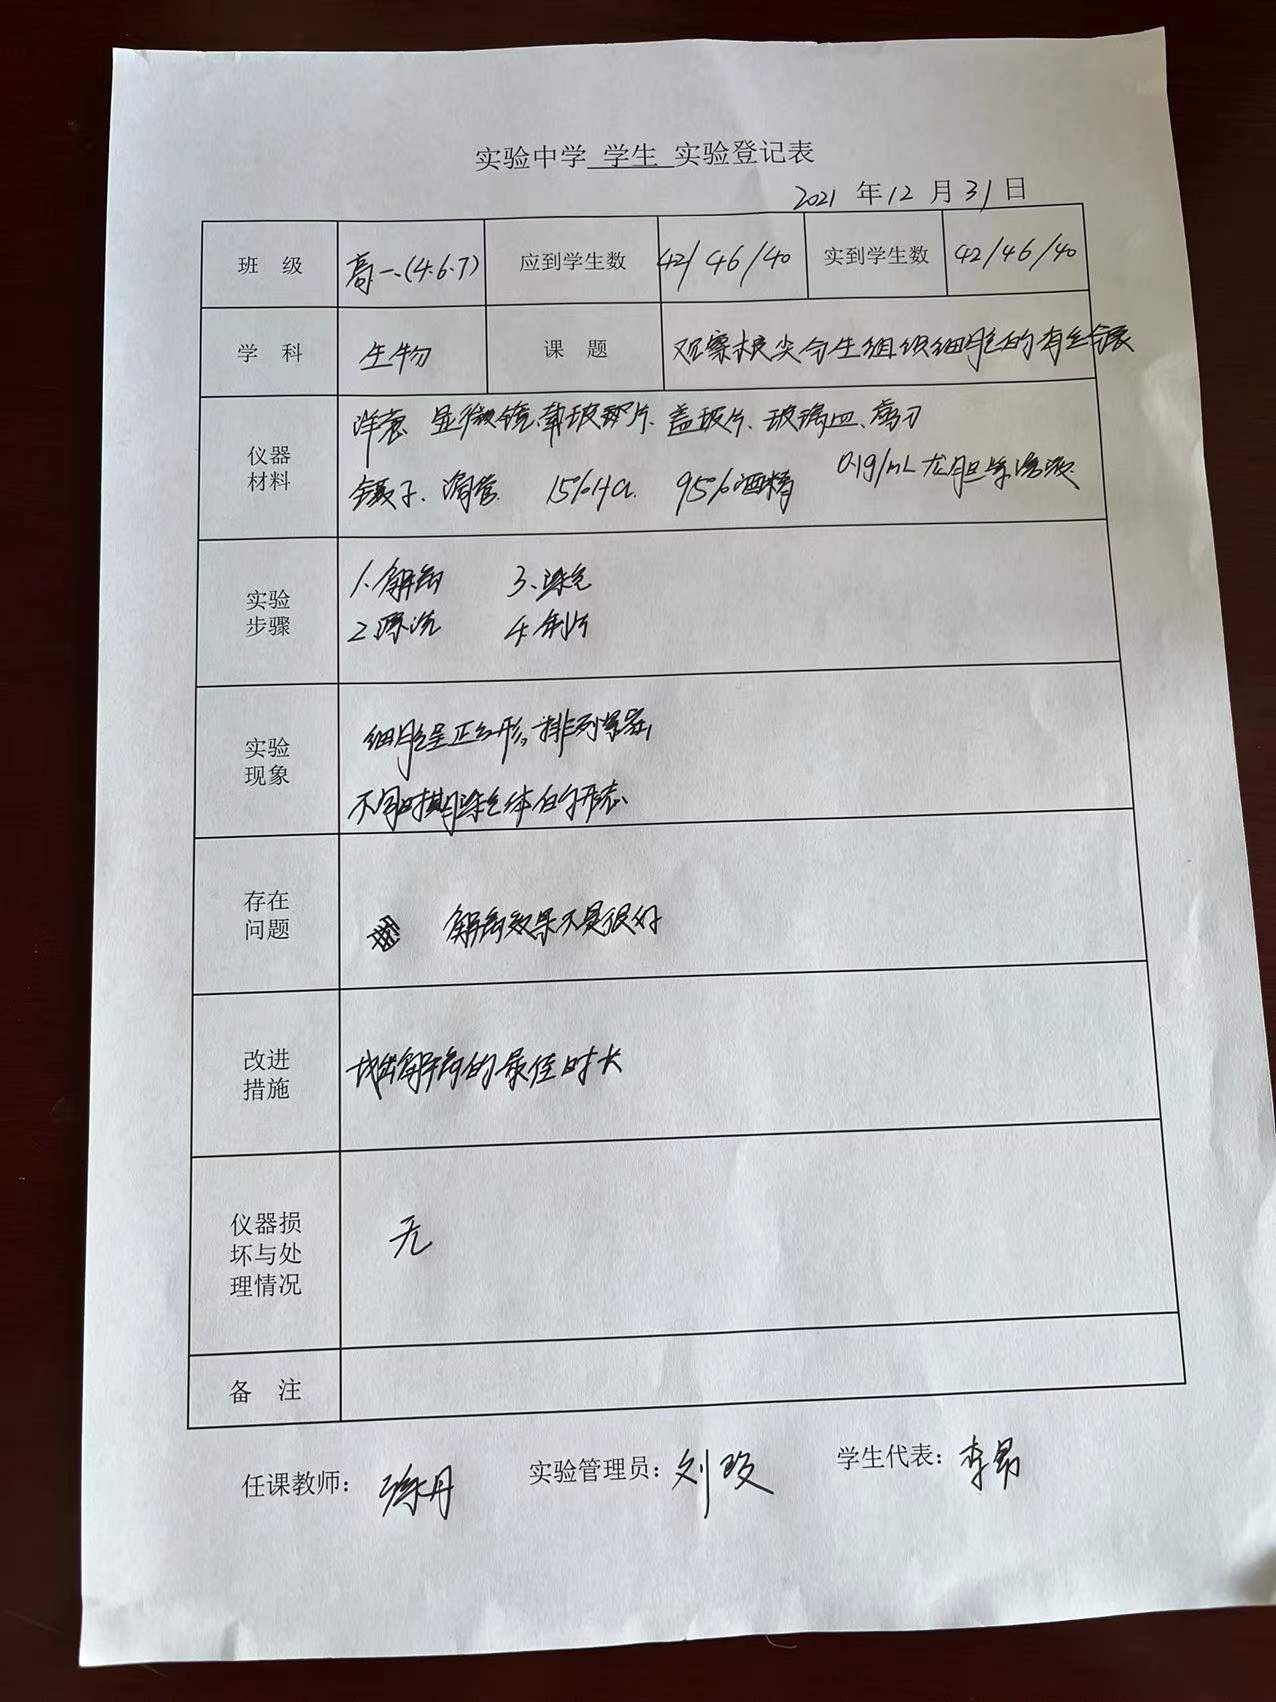 实验中学 学生 实验登记表
2021 年 12 月 31 日
班 级 高一(4.6.7) 应到学生数 42/46/40 实到学生数 42/46/40
学 科 生物 课 题 观察根尖分生组织细胞的有丝分裂
仪器
材料
洋葱 显微镜、载玻片、盖玻片、玻璃皿、剪刀
镊子、滴管 15%HCl 95%酒精 0.1g/mL 龙胆紫溶液
实验
步骤
1、解离 3、染色
2、漂洗 4、制片
实验
现象
细胞呈正方形,排列紧密,
不同时期染色体的形态、
存在
问题
解离效果不是很好
改进
措施
找出解离的最佳时长
仪器损
坏与处
理情况
无
备 注
任课教师: 徐丹 实验管理员: 刘 学生代表: 李昂